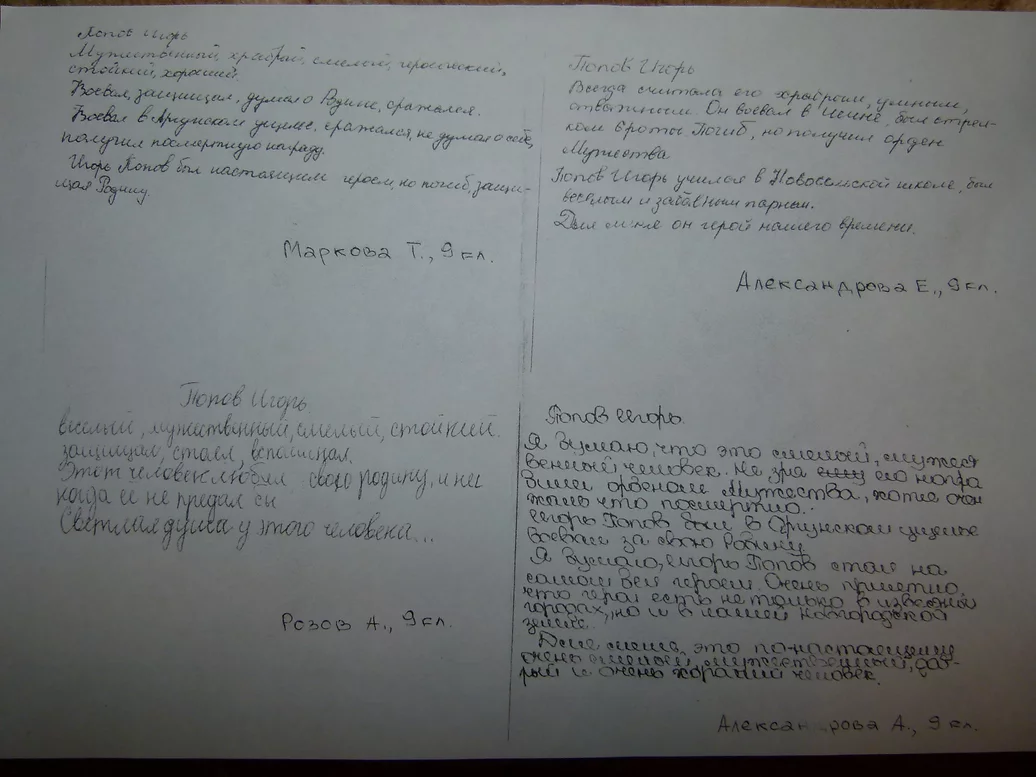 Попов Игорь
Мужественный, храбрый, смелый, героический,
стойкий, хороший.
Воевал, защищал, думал о Родине, сражался.
Воевал в Аргунском ущелье, сражался, не думая о себе,
получил посмертную награду.
Игорь Попов был настоящим героем, но погиб, защи-
щая Родину.
Маркова Т., 9 кл.
Попов Игорь
Всегда считала его храбрым, умным,
отважным. Он воевал в Чечне, был стрел-
ком 6 роты. Погиб, но получил орден
Мужества
Попов Игорь учился в Новосельской школе, был
весёлым и забавным парнем.
Для меня он герой нашего времени.
Александрова Е., 9 кл.
Попов Игорь
весёлый, мужественный, смелый, стойкий.
защищал, стоял,
Этот человек любил свою родину, и ни
когда ее не предал бы
Светлая душа у этого человека...
Розов А., 9 кл.
Попов Игорь.
Я думаю, что это смелый, мужест
венный человек. Не зря его награ
дили орденом Мужества, хотя
жаль что посмертно.
Игорь Попов был в Аргунском ущелье
Воевал за свою Родину
Я думаю, Игорь Попов стал на
самом деле героем. Очень приятно,
что герои есть не только в
городах, но и в нашей новгородской
земле.
Для меня, это по-настоящему
очень смелый, мужественный, доб-
рый и очень хороший человек.
Александрова А., 9 кл.